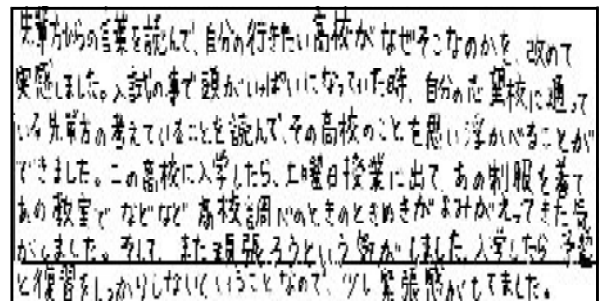 先輩方からの言葉を読んで、自分の行きたい高校がなぜそこなのかを、改めて
実感しました。入試の事で頭がいっぱいになっていた時、自分の志望校に通って
いる先輩方の考えていることを読んで、その高校のことを思い浮かべることが
できました。この高校に入学したら、土曜日授業に出て、あの制服を着て
あの教室で などなど 高校調べのときのときめきがよみがえってきた気
がしました。そして、また頑張ろうという気がしました。入学したら 予習
と復習をしっかりしないとということなので、少し緊張感がもてました。